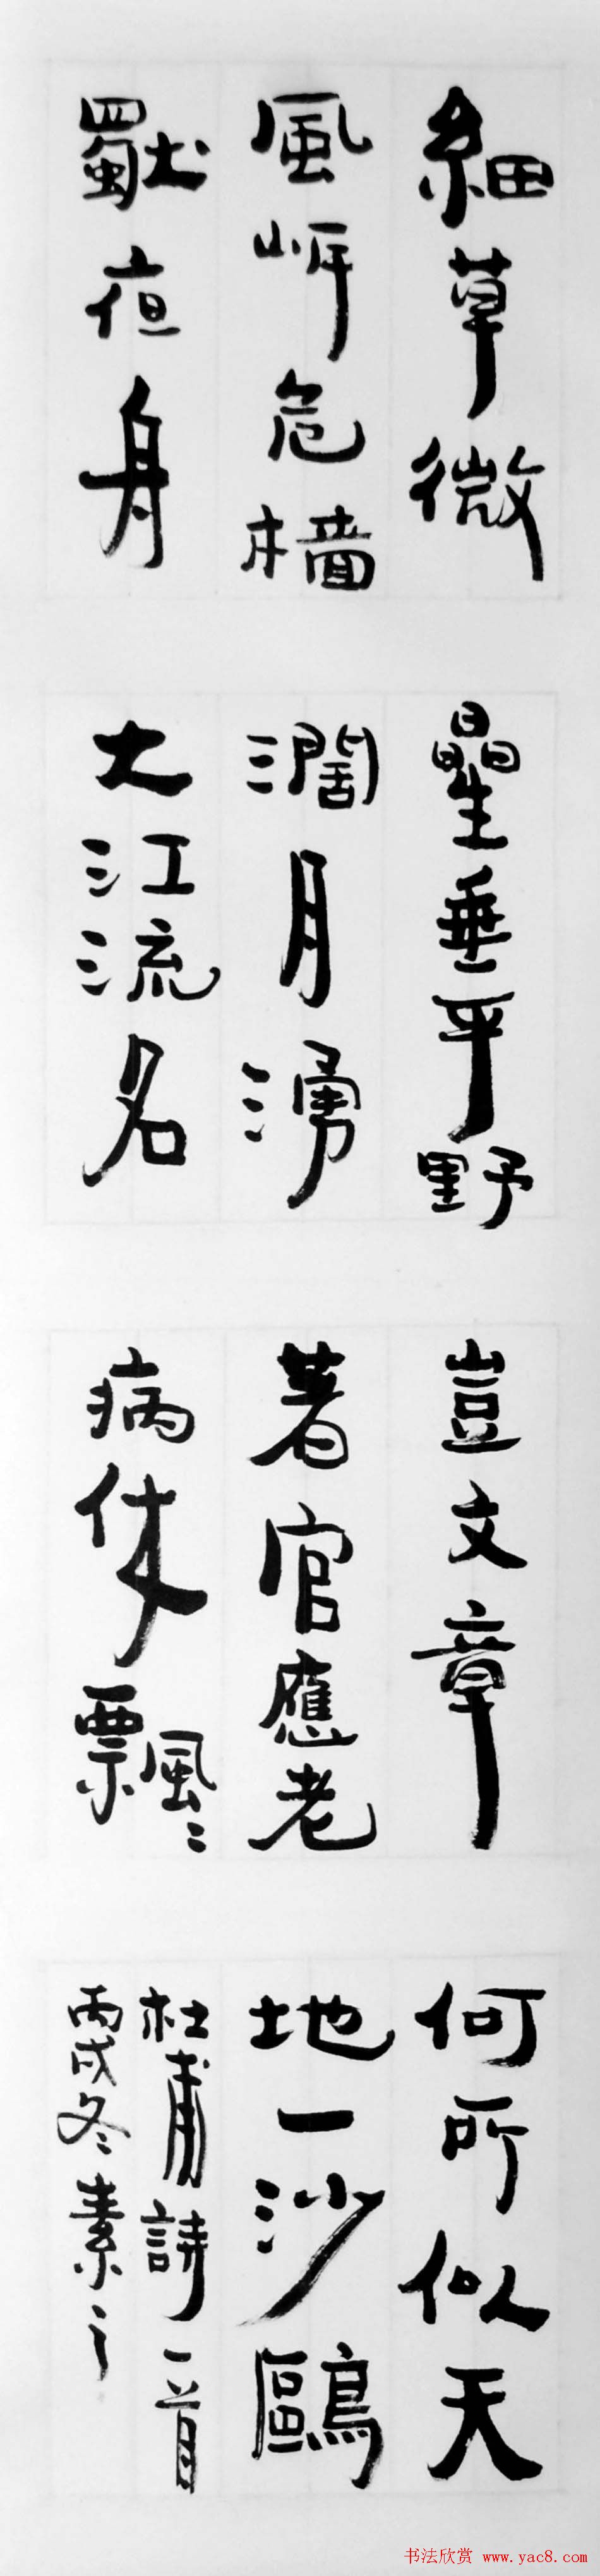 細草微
風岸危檣
獨夜舟
曐垂平野
濶月湧
大江流名
豈文章
著官應老
病休飄〻
何所似天
地一沙鷗
杜甫詩一首
丙戌冬素之
书法欣赏 www.yac8.com